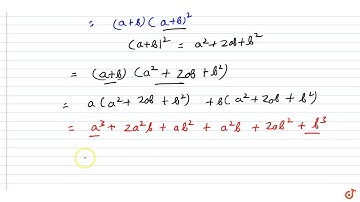 = (a+b) (a+b)²
(a+b)² = a² + 2ab + b²
= (a+b) (a² + 2ab + b²)
= a (a² + 2ab + b²) + b (a² + 2ab + b²)
= a³ + 2a²b + ab² + a²b + 2ab² + b³